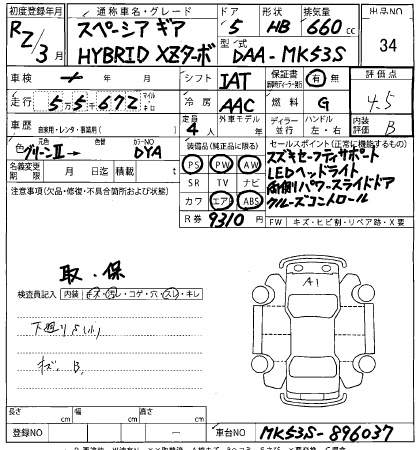 初度登録年月 通称車名・グレード ドア 形状 排気量 出品NO
R2/3月 スペーシア ギア 5 HB 660cc 34
HYBRID XZターボ 型式 DAA-MK53S
車検 年 月 シフト IAT 保証書 有 無 評価点
走行 55672 マイル キロ 冷房 AAC 燃料 G 4.5
車歴 自家用・レンタ・事業用( ) 定員 4人 外車モデル 年 ディーラー 並行 ハンドル 左・右 内装評価 B
色 グリーンⅡ→ 色替 カラーNO DYA 装備品(純正品に限る) セールスポイント(正常に機能するもの)
名義変更期限 月 日迄 積載 t PS PW AW スズキセーフティサポート
注意事項(欠品・修復・不具合箇所および状態) SR TV ナビ LEDヘッドライト
カワ エアB ABS 両側パワースライドドア
R券 9310円 クルーズコントロール
FW キズ・ヒビ割・リペア跡・X要
取・保
検査員記入 内装・キズ・汚レ・コゲ・穴・スレ・キレ
A1
下廻りS(小)
キズ、B、
長さ cm 幅 cm 高さ cm
登録NO — 車台NO MK53S-896037